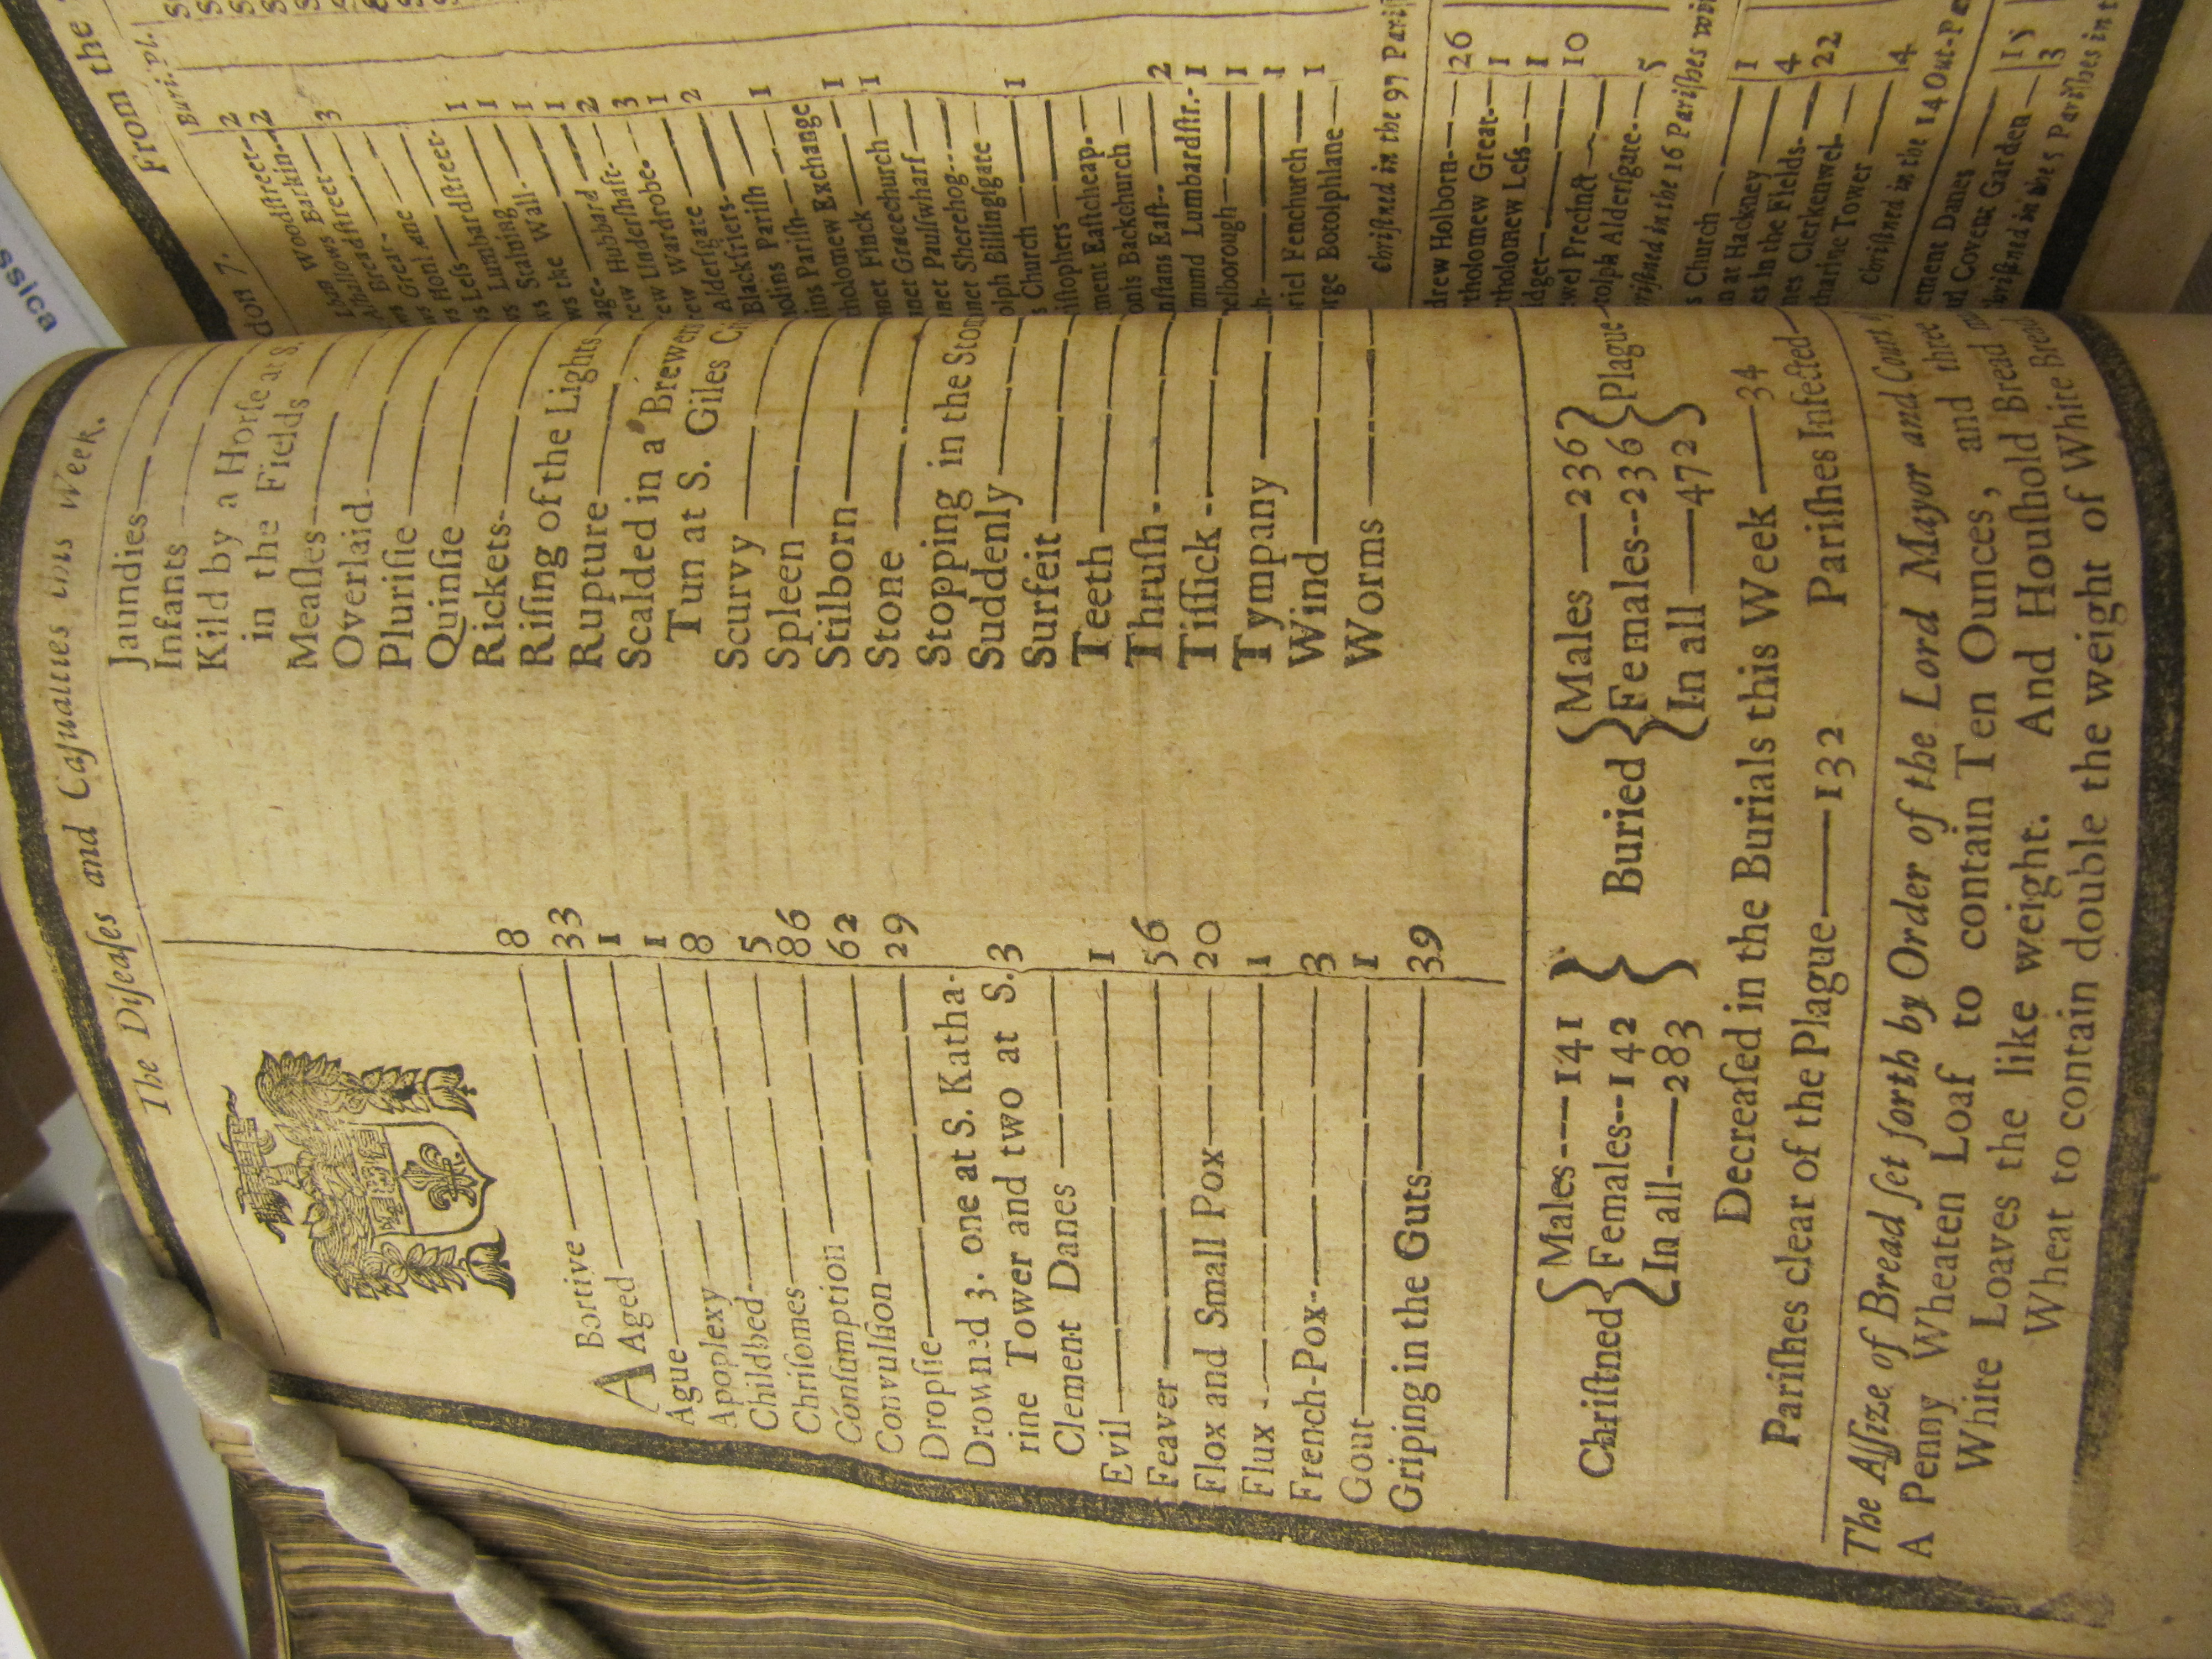 The Diſeaſes and Caſualties this Week.
ABortive 8
Aged 33
Ague 1
Apoplexy 1
Childbed 8
Chriſomes 5
Conſumption 86
Convulſion 62
Dropſie 29
Drowned 3. one at S. Katha-
rine Tower and two at S. 3
Clement Danes
Evil 1
Feaver 56
Flox and Small Pox 20
Flux 1
French-Pox 3
Gout 1
Griping in the Guts 39
Jaundies
Infants
Kild by a Horſe at S.
in the Fields
Meaſles
Overlaid
Pluriſie
Quinſie
Rickets
Riſing of the Lights
Rupture
Scalded in a Brewers
Tun at S. Giles
Scurvy
Spleen
Stilborn
Stone
Stopping in the
Suddenly
Surfeit
Teeth
Thruſh
Tiſſick
Tympany
Wind
Worms
Chriſtned { Males 141
Females 142
In all 283 }
Buried { Males 236
Females 236
In all 472 } Plague
Decreaſed in the Burials this Week 34
Pariſhes clear of the Plague 132 Pariſhes Infected
The Aſſize of Bread ſet forth by Order of the Lord Mayor and Court
A Penny Wheaten Loaf to contain Ten Ounces, and three
White Loaves the like weight. And Houſhold Bread
Wheat to contain double the weight of White Bread
From the
Buri. Pl.
Woodſtreet 2
Barkin 2
Breadſtreet 3
Great
Lane
Leſs Lumbardſtreet 1
Staining 1
the Wall 1
Hubbard 2
Underſhaft 3
Wardrobe 1
Alderſgate 2
Blackfriers
Pariſh 1
Pariſh
Exchange
Finck 1
Gracechurch 1
Paulſwharf
Sherehog
Billingſgate
Church 1
Eaſtcheap
Backchurch
Eaſt 2
Lumbardſtr. 1
1
1
Fenchurch 1
Botolphlane
Chriſtned in the 97 Pariſ
Holborn 26
Great 1
Leſs 1
10
Precinct
Alderſgate 5
in the 16 Pariſhes
Church
at Hackney 1
in the Fields 4
Clerkenwel 22
Tower 4
Chriſtned in the 14 Out-Pa
Danes
Covent Garden 3
in the 5 Pariſhes in
ssica